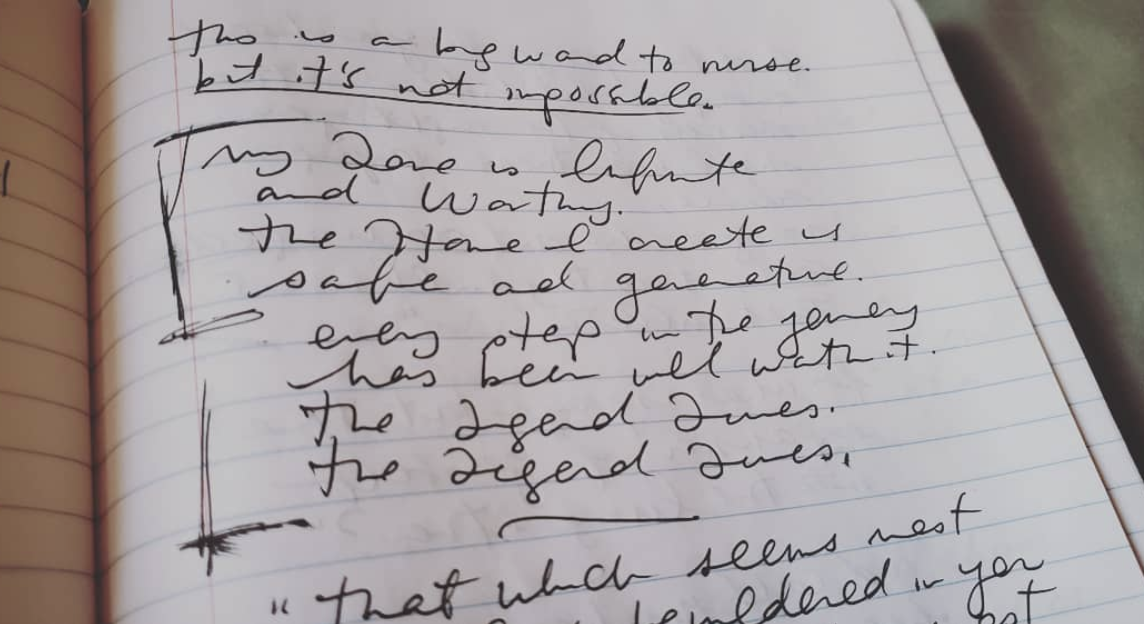 this is a big wand to nurse.
but it's not impossible.
my Love is Infinite
and Worthy.
the Home I create is
safe and generative.
every step in the journey
has been well worth it.
The Legend Lives.
the Legend Lives.
"that which seems most
bewildered in you